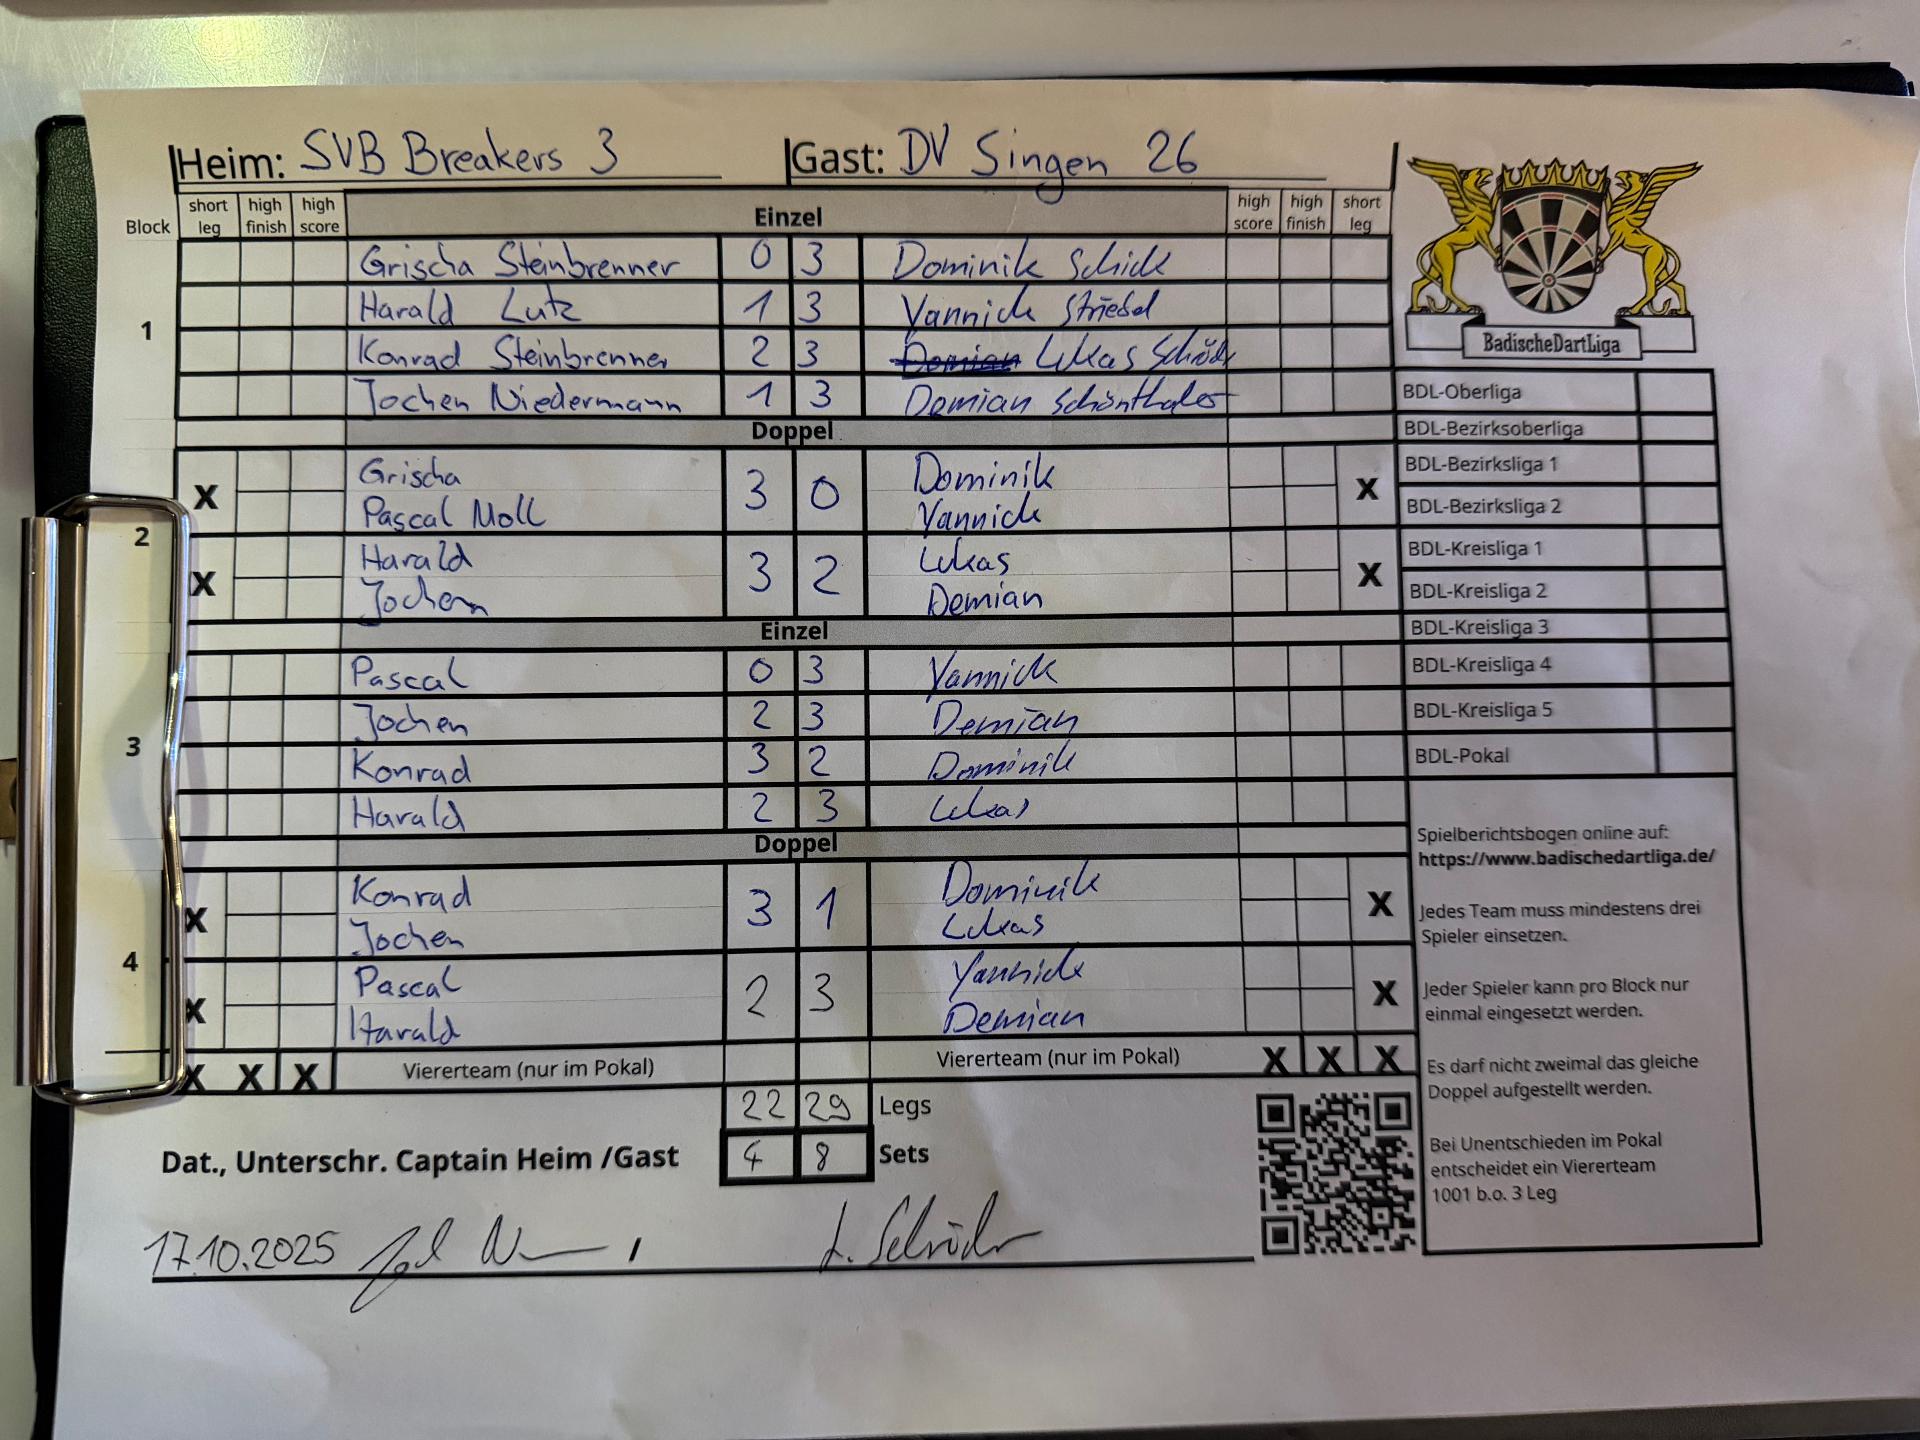 Heim: SVB Breakers 3 Gast: DV Singen 26
Block short leg high finish high score Einzel high score high finish short leg
1
Grischa Steinbrenner 0 3 Dominik Schick
Harald Lutz 1 3 Yannick Striebel
Konrad Steinbrenner 2 3 Demian Lukas Schröder
Jochen Niedermann 1 3 Demian Schönthaler
Doppel
2
X Grischa Pascal Moll 3 0 Dominik Yannick X
X Harald Jochen 3 2 Lukas Demian X
Einzel
3
Pascal 0 3 Yannick
Jochen 2 3 Demian
Konrad 3 2 Dominik
Harald 2 3 Lukas
Doppel
4
X Konrad Jochen 3 1 Dominik Lukas X
X Pascal Harald 2 3 Yannick Demian X
X X X Viererteam (nur im Pokal) Viererteam (nur im Pokal) X X X
22 29 Legs
4 8 Sets
Dat., Unterschr. Captain Heim /Gast
17.10.2025 / L. Schröder
BadischeDartLiga
BDL-Oberliga
BDL-Bezirksoberliga
BDL-Bezirksliga 1
BDL-Bezirksliga 2
BDL-Kreisliga 1
BDL-Kreisliga 2
BDL-Kreisliga 3
BDL-Kreisliga 4
BDL-Kreisliga 5
BDL-Pokal
Spielberichtsbogen online auf:
https://www.badischedartliga.de/
Jedes Team muss mindestens drei
Spieler einsetzen.
Jeder Spieler kann pro Block nur
einmal eingesetzt werden.
Es darf nicht zweimal das gleiche
Doppel aufgestellt werden.
Bei Unentschieden im Pokal
entscheidet ein Viererteam
1001 b.o. 3 Leg